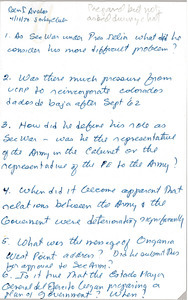 Gen I. Avalos
Prepared but not
asked during chat
1. As SecWar under Pres Guido what did he
consider his more difficult problem?
2. Was there much pressure from
to reincorporate colorados
dados de baja after Sept 62
3. How did he define his role as
SecWar - was he the representative
of the Army in the Cabinet or the
representative of the PE to the Army?
4. When did it become apparent that
relations between the Army &
the Government were deteriorating significantly
5. What was the meaning of Ongania
West Point address? Did he submit this
for approval to SecArmy?
6. Is it true that the Estado Mayor
General del Ejercito began preparing a
plan of government? When?